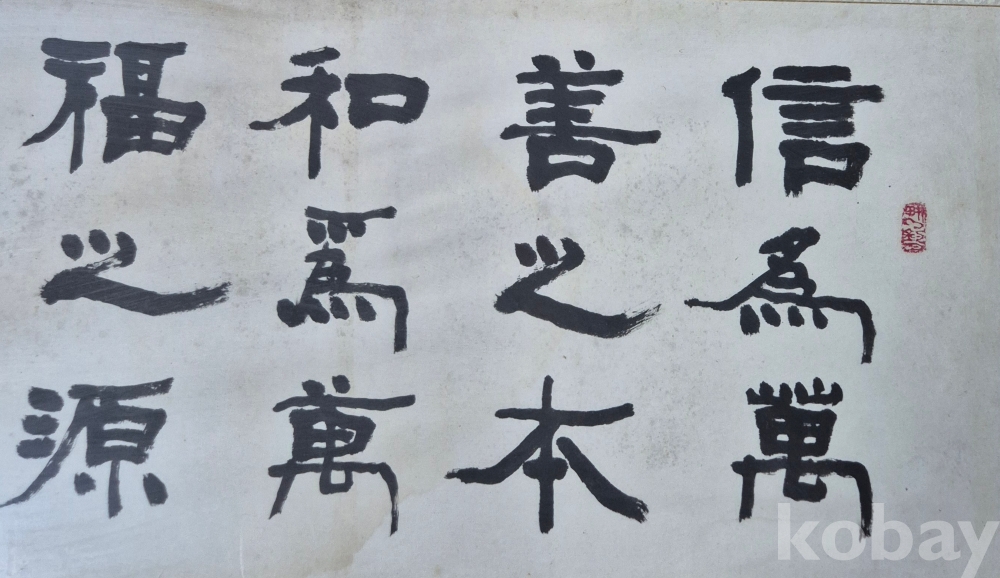 信爲萬
善之本
和爲萬
福之源
kobay